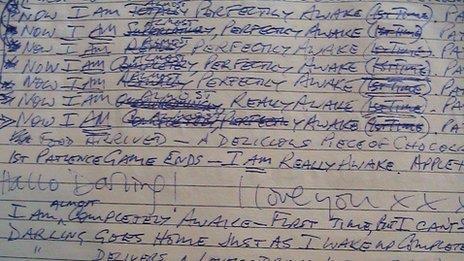 NOW I AM PERFECTLY AWAKE (1ST TIME). PA
NOW I AM ALMOST PERFECTLY AWAKE (1ST TIME). PAT
NOW I AM ALMOST PERFECTLY AWAKE (1ST TIME). PA
NOW I AM ALMOST PERFECTLY AWAKE (1ST TIME). PAT
NOW I AM ALMOST PERFECTLY AWAKE (1ST TIME). PAT
NOW I AM ALMOST REALLY AWAKE (1ST TIME). PAT
NOW I AM ALMOST PERFECTLY AWAKE (1ST TIME). PAT
FOOD ARRIVED – A DELICIOUS PIECE OF CHOCOL
1ST PATIENCE GAME ENDS – I AM REALLY AWAKE. APPLE
Hallo Darling! I love you xxx
I AM ALMOST COMPLETELY AWAKE – FIRST TIME, BUT I CAN'T
DARLING GOES HOME JUST AS I WAKE UP COMPLETE
" DELIVERS A